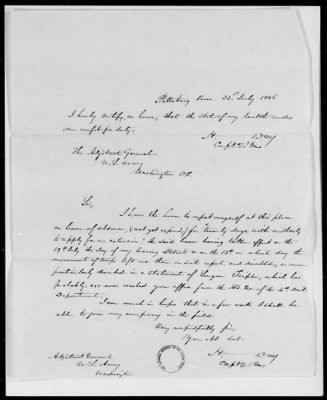 Pittsburg Penn. 31st July 1846
I hereby certify, on honor, that the state of my health renders
me unfit for duty.
H Day
Capt 2d Inf
The Adjutant General
U. S. Army
Washington
Sir,
I have the honor to report myself at this place
on leave of absence, (not yet expired) for twenty days with authority
to apply for an extension; the said leave having taken effect on the
19th July the day of my leaving Detroit or on the 18th on which day the
movement of troops left me there on sick report, and disabled, as more
particularly described in a statement of Surgeon which has
probably, ere now, reached your office from the Hd. Qrs of the
Department.
I am much in hopes that in a few weeks I shall be
able to join my company in the field.
Very respectfully Sir,
Your Obt Svt.
H Day
Capt 2d Inf
Adjutant General
U. S. Army
Washington